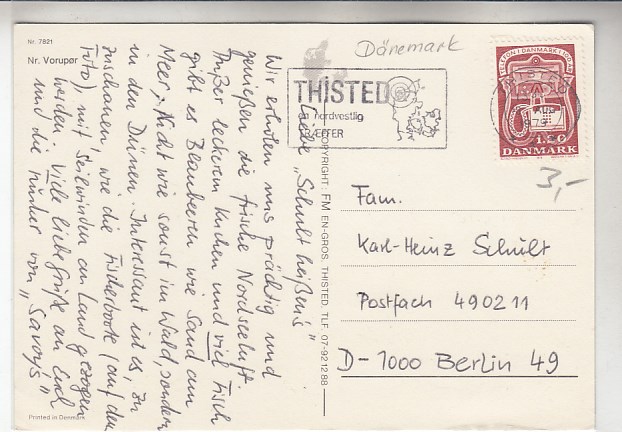 Nr. 7821
Nr. Vorupør
Dänemark
THISTED
en nordvestlig
TELEFON I DANMARK I 100 ÅR
DANMARK
3,-
Liebe „Schult heißens"
Wir erholen uns prächtig und
genießen die frische Nordseeluft.
Außer leckeren Kuchen und viel Fisch
gibt es Blaubeeren wie Sand am
Meer, nicht wie sonst im Wald, sondern
in den Dünen. Interessant ist es, zu
zuschauen, wie die Fischerboote (auf dem
Foto), mit Seilwinden an Land gezogen
werden. Viele liebe Grüße an Euch
und die Kinder von „Savoys"
COPYRIGHT: FM EN-GROS, THISTED, TLF. 07-92 12 88
Fam.
Karl-Heinz Schult
Postfach 490211
D-1000 Berlin 49
Printed in Denmark